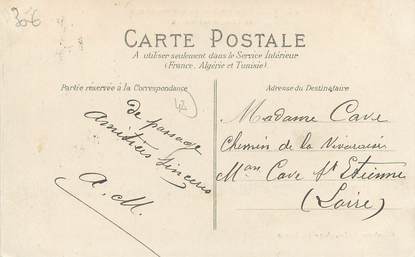 306
CARTE POSTALE
A utiliser seulement dans le Service Intérieur
(France, Algérie et Tunisie)
Partie réservée à la Correspondance
Adresse du Destinataire
42
de passage
amitiés sincères
A. M.
Madame Cave
Chemin de la Vivaraise
Mon Cave St Etienne
(Loire)